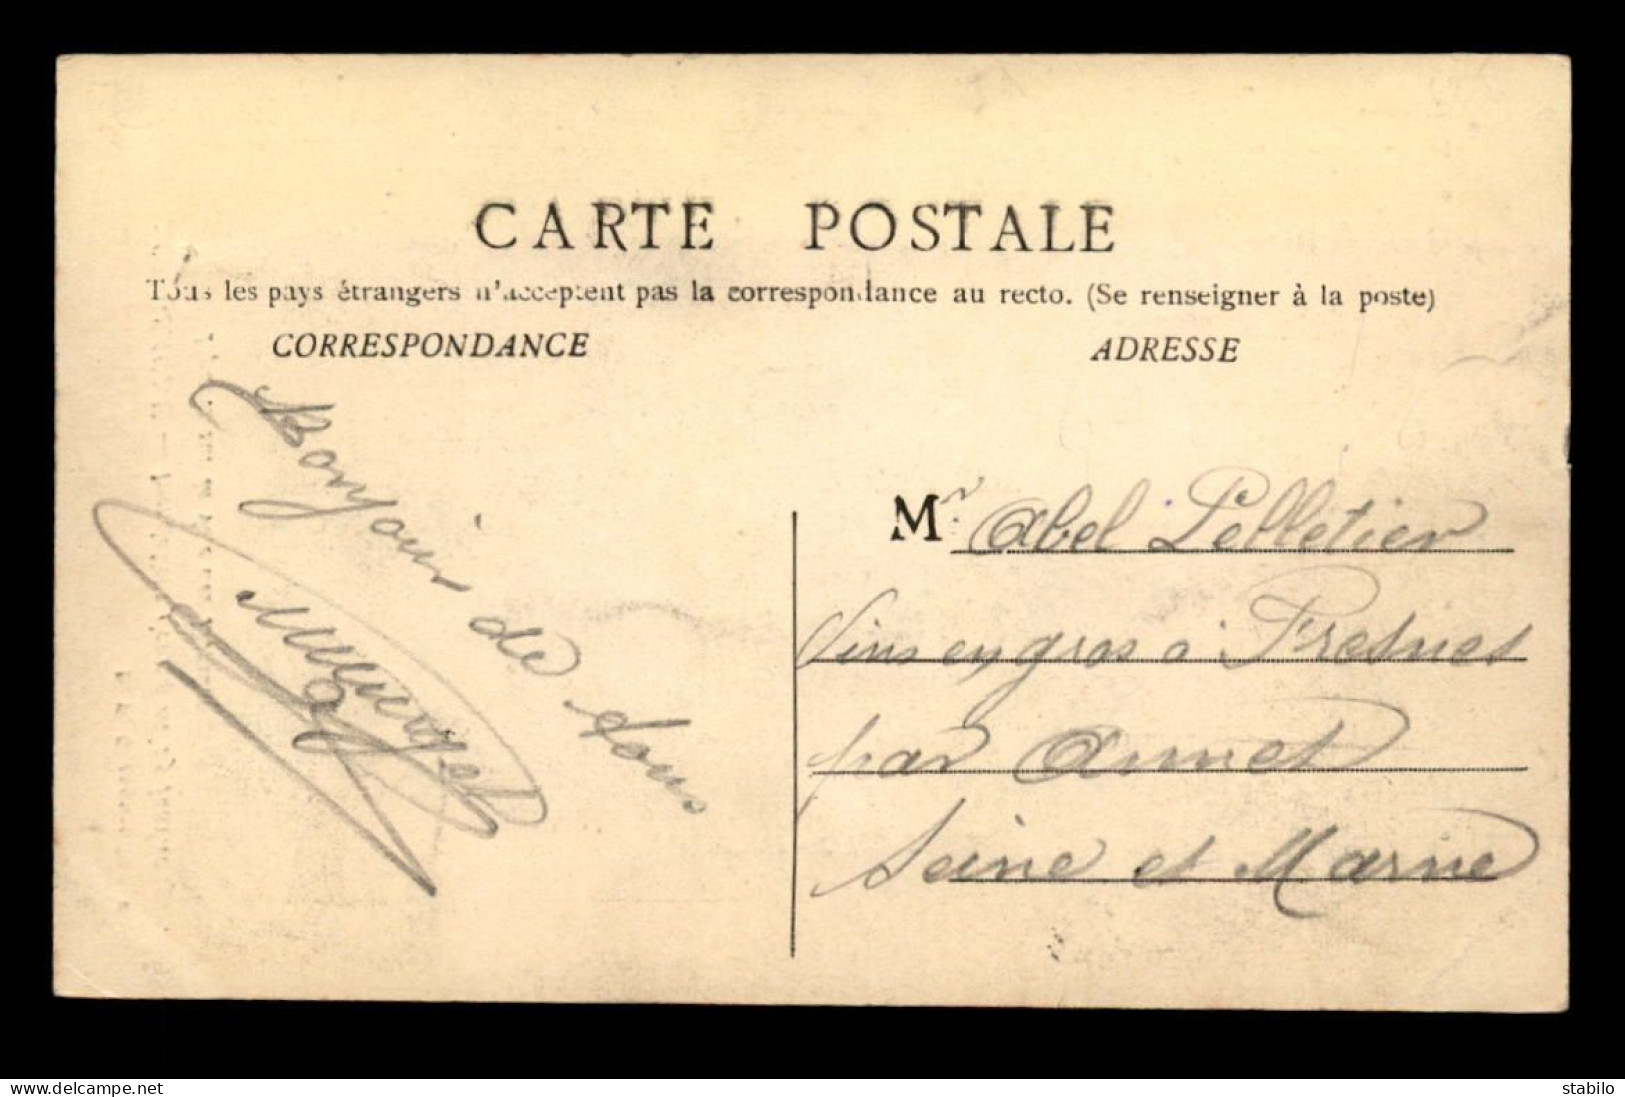 CARTE POSTALE
Tous les pays étrangers n'acceptent pas la correspondance au recto. (Se renseigner à la poste)
CORRESPONDANCE
ADRESSE
Bonjour de tous
Mr. Abel Pelletier
Vins en gros à Fresnes
par Annet
Seine et Marne
www.delcampe.net
stabilo